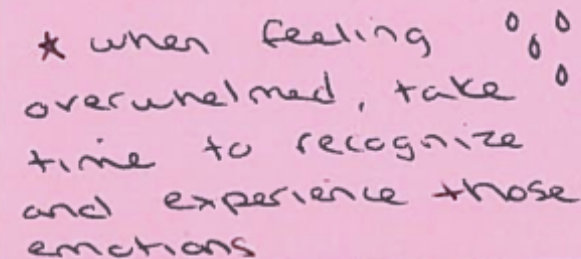 * when feeling
overwhelmed, take
time to recognize
and experience those
emotions